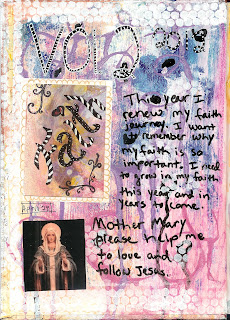 VOID 2014
This year I
renew my faith
journey. I want
to remember why
my faith is so
important. I need
to grow in my faith
this year and in
years to come.
Mother Mary
please help me
to love and
follow Jesus.